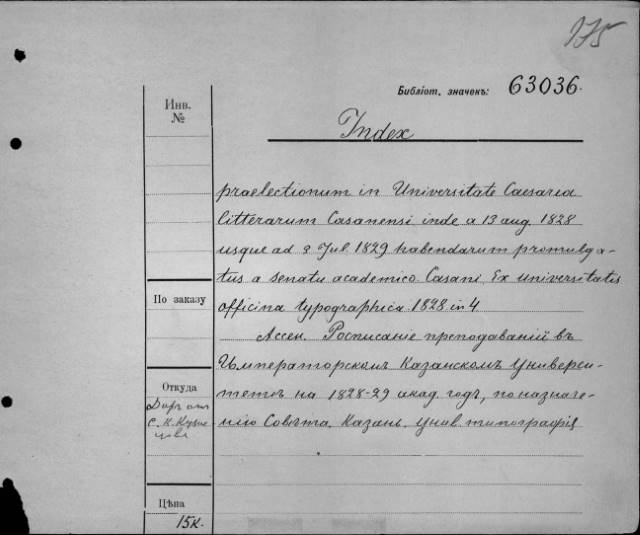 175
Библіот. значекъ: 63036.
Инв.
№
Index
praelectionum in Universitate Caesarea
litterarum Casanensi inde a 13 aug. 1828
usque ad 3 Jul. 1829 habendarum promulga-
tus a senatu academico. Casani. Ex universitatis
officina typographica 1828 in 4.
По заказу
Ассен. Росписаніе преподаваній въ
Императорскомъ Казанскомъ Универси-
тетѣ на 1828-29 акад. годъ, по назначе-
нію Совѣта. Казань. Унив. типографія
Откуда
Даръ отъ
С. К. Кузне
цова
Цѣна
15к.